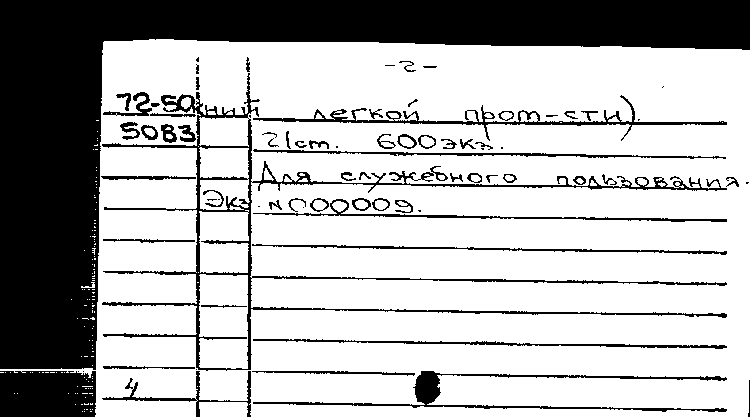 -2-
72-50кний легкой пром-сти)
5083 21ст. 600экз.
Для служебного пользования.
Экз. N000009.
4